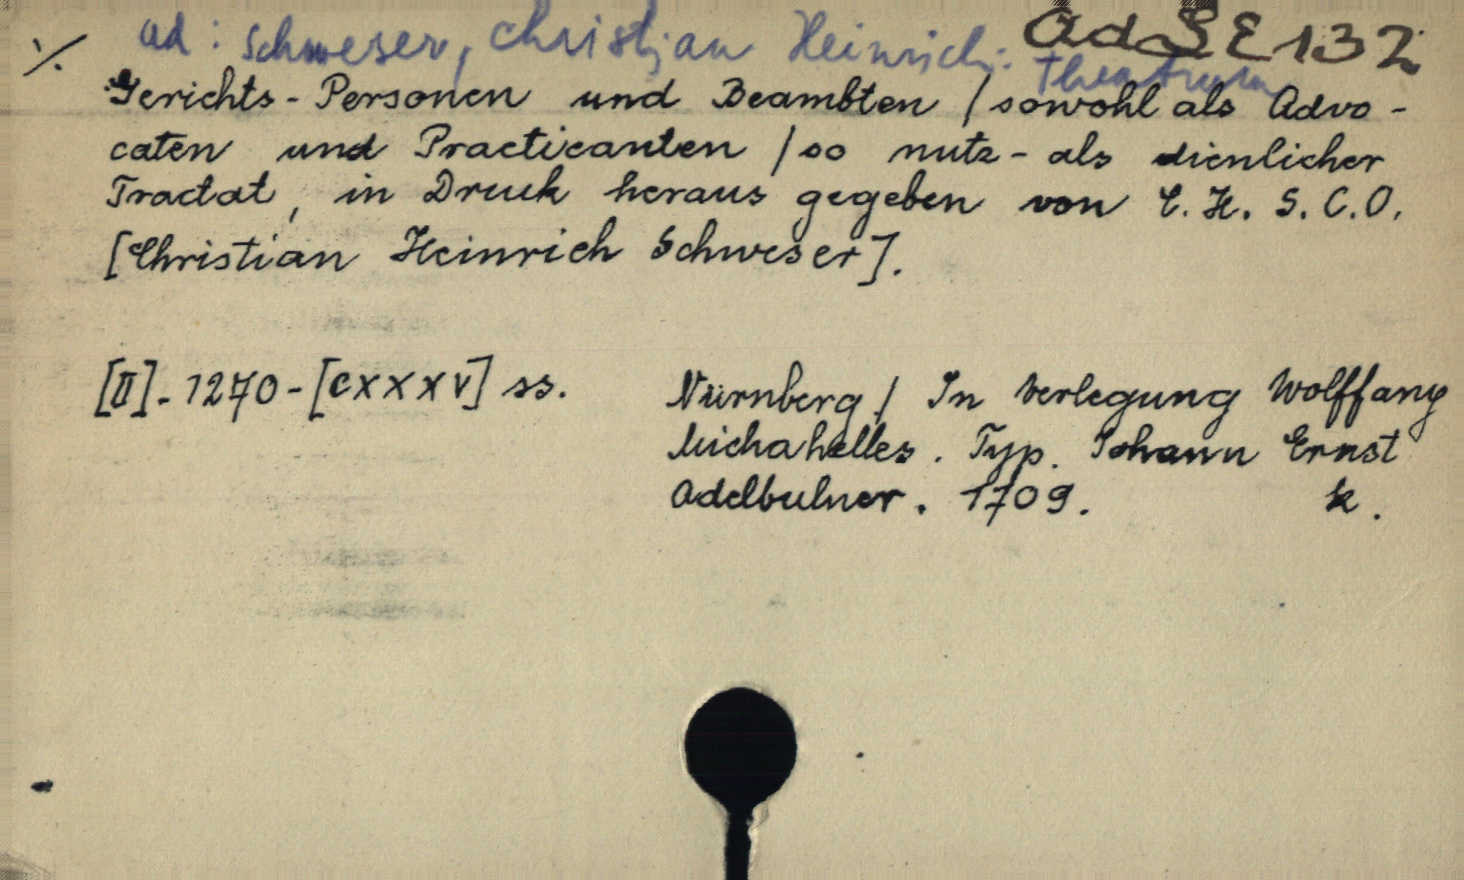 ad: Schweser, Christian Heinrich: Theatrum
AdSE132
./.
Gerichts-Personen und Beambten / sowohl als Advo-
caten und Practicanten / so nutz- als dienlicher
Tractat, in Druck heraus gegeben von C. H. S. C. O.
[Christian Heinrich Schweser].
[II]. 1270-[CXXXV] ss.
Nürnberg / In Verlegung Wolffang
Michahelles. Typ. Johann Ernst
Adelbulner. 1709. k.